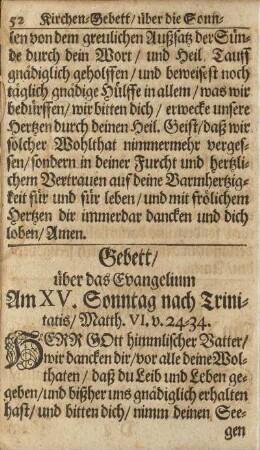 52 Kirchen-Gebett/ über die Sonn-
sen von dem greulichen Außsatz der Sün-
de durch dein Wort/ und Heil. Tauff
gnädiglich geholffen/ und beweisest noch
täglich gnädige Hülffe in allem/ was wir
bedürffen/ wir bitten dich/ erwecke unsere
Hertzen durch deinen Heil. Geist/ daß wir
solcher Wohlthat nimmermehr verges-
sen/ sondern in deiner Furcht und hertzli-
chem Vertrauen auf deine Barmhertzig-
keit für und für leben/ und mit frölichem
Hertzen dir immerdar dancken und dich
loben/ Amen.
Gebett/
über das Evangelium
Am XV. Sonntag nach Trini-
tatis/ Matth. VI. v. 24-34.
HERR GOtt himmlischer Vatter/
wir dancken dir/ vor alle deine Wol-
thaten/ daß du Leib und Leben ge-
geben/ und bißher uns gnädiglich erhalten
hast/ und bitten dich/ nimm deinen See-
gen